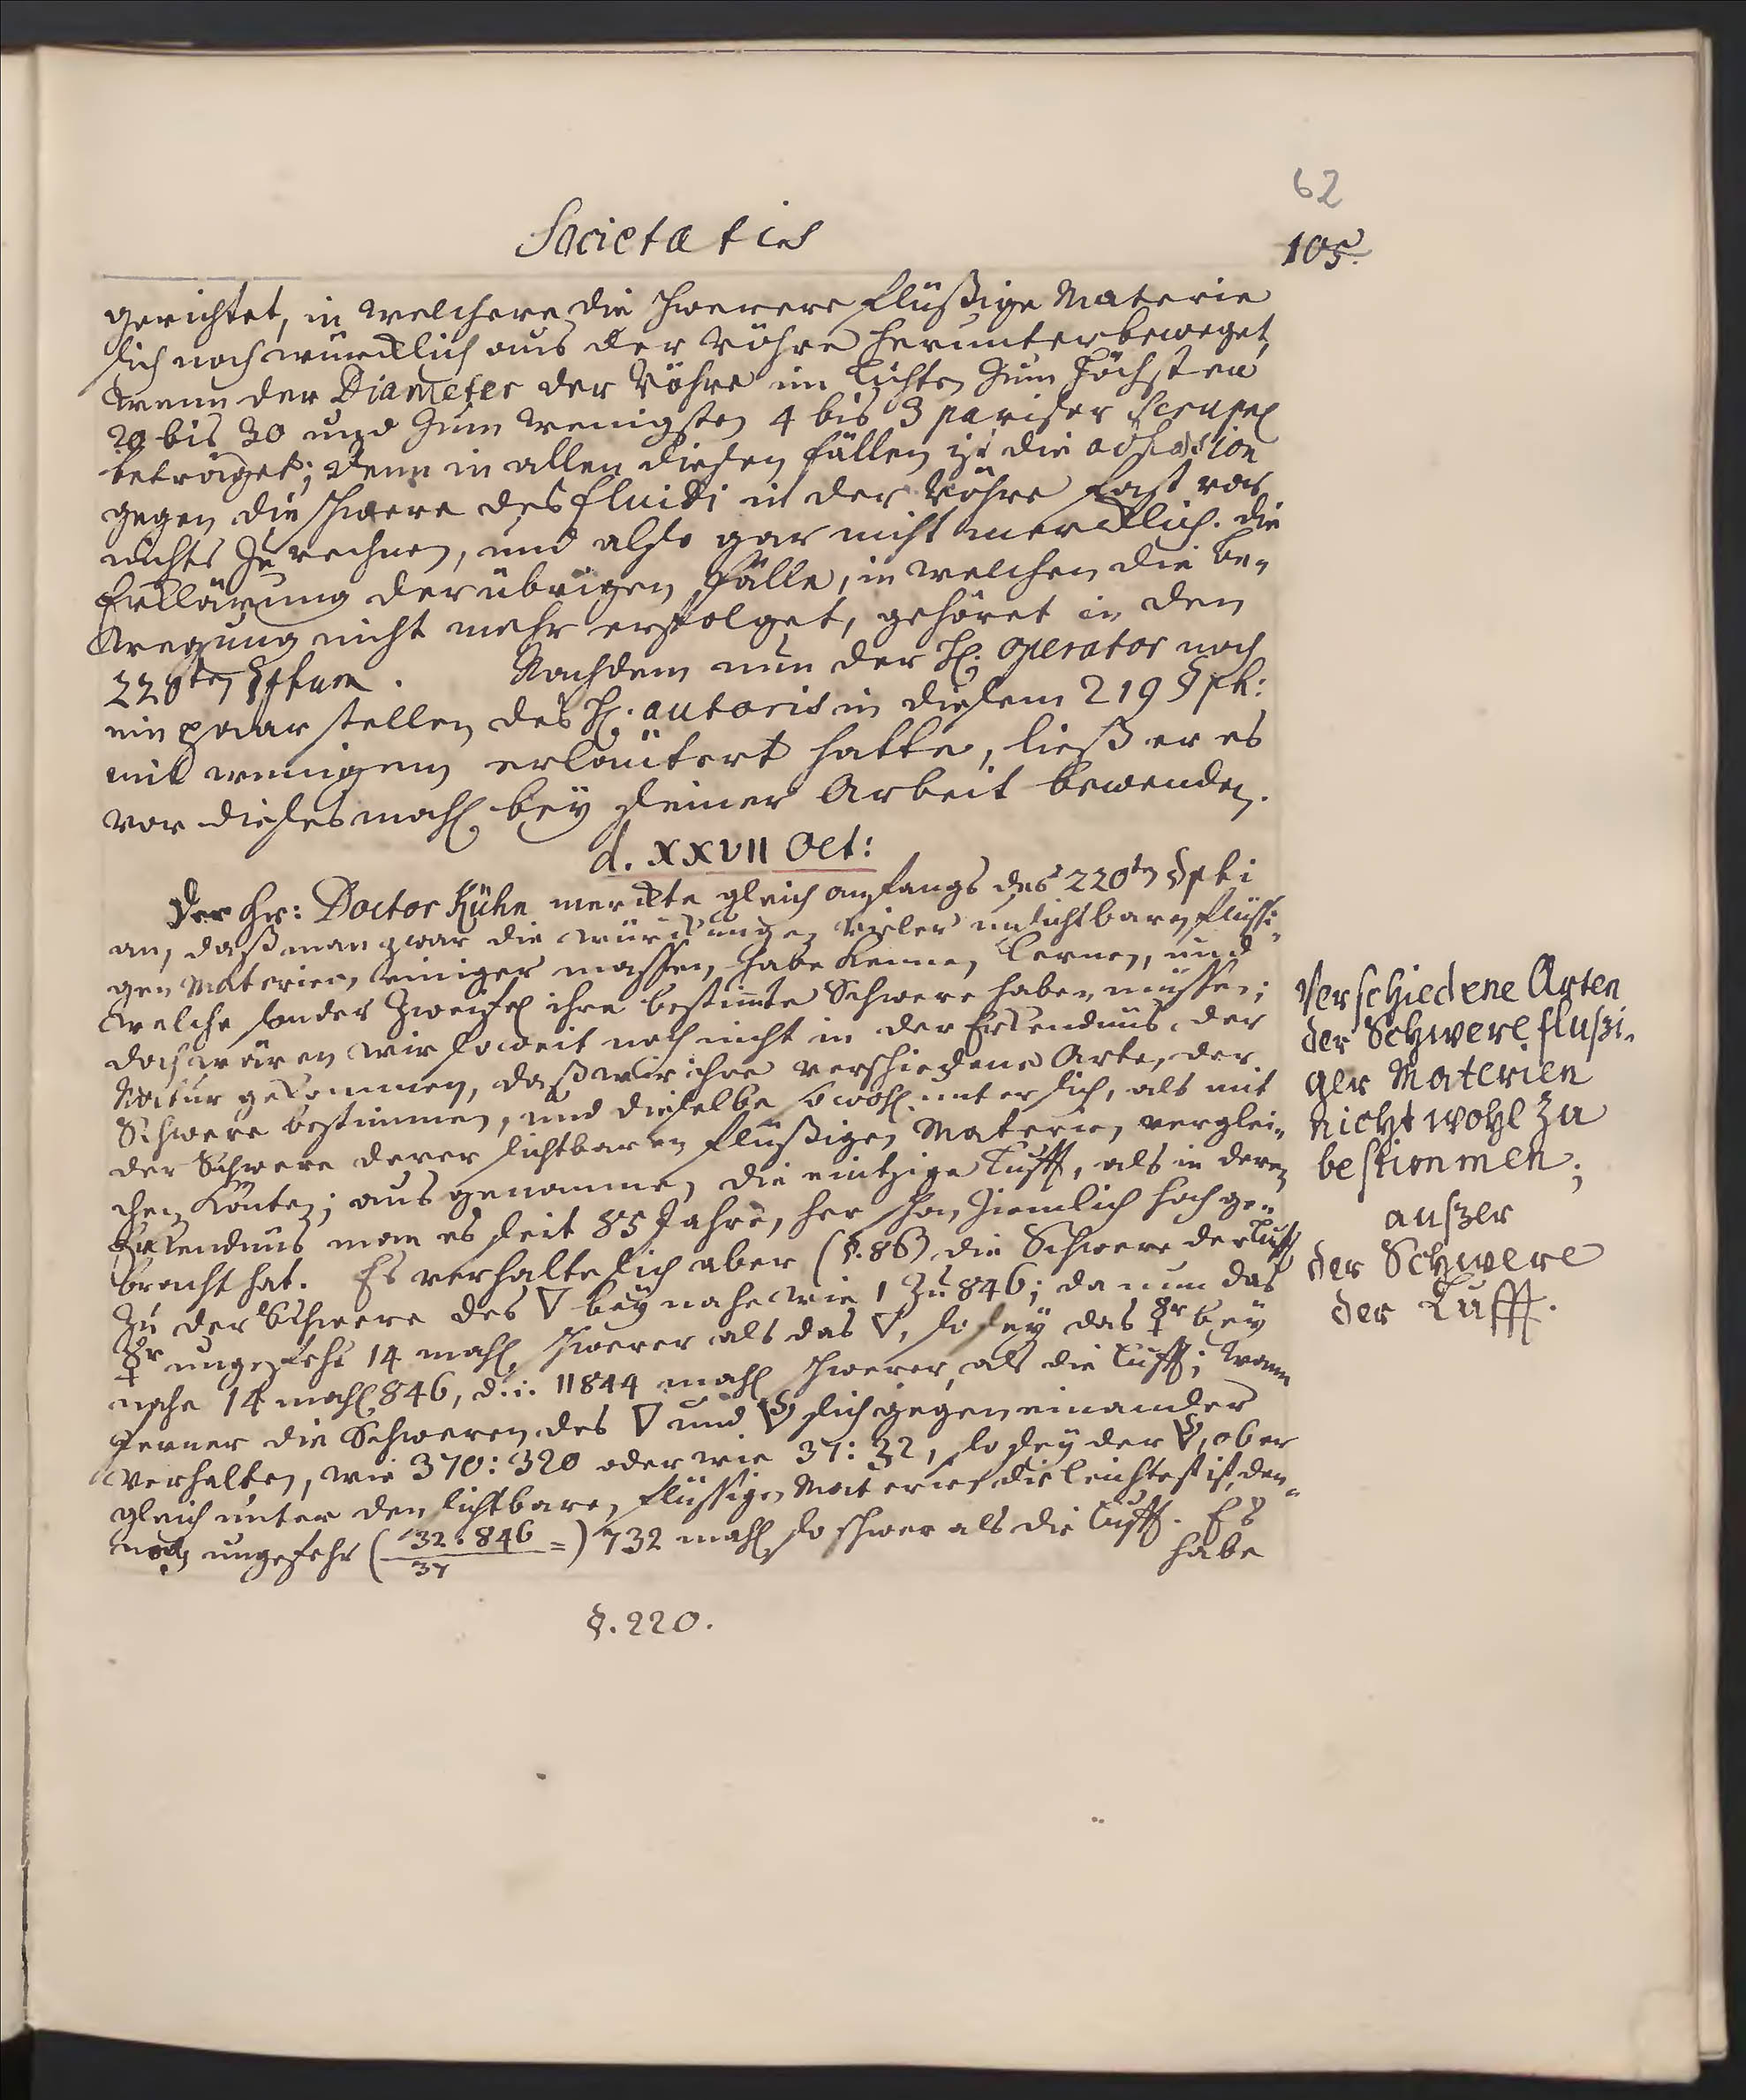 62
Societatis
105.
gerichtet, in welchen die schwerere flüßige Materie
sich noch würcklich aus der Röhre herunterbeweget,
wenn der Diameter der Röhre im Lichten zum höchsten
20 bis 30 und zum wenigsten 4 bis 3 pariser Scrupel
beträget; denn in allen diesen fällen ist die adhaesion
gegen die schwere des fluidi in der Röhre fast vor
nichts zu rechnen, und also gar nicht mercklich. die
Erklärung der übrigen Fälle, in welchen die Be-
wegung nicht mehr erfolget, gehöret in den
220ten §phum. Nachdem nun der H. Operator noch
ein paar stellen des H. autoris in diesem 219 §ph:
mit wenigem erläutert hatte, ließ er es
vor diesesmahl bey seiner Arbeit bewenden.
d. XXVII Oct:
Der Hr: Doctor Kühn merckte gleich anfangs des 220ten §phi
an, daß man zwar die würckungen vieler unsichtbaren flüssi-
gen Materien einiger massen habe kennen lernen, und
welche sonder Zweifel ihre bestimte Schwere haben müssen;
doch wären wir so weit noch nicht in der Erkendnüs der
Natur gekommen, daß wir ihre verschiedene Arten der
Schwere bestimmen, und dieselbe sowohl unter sich, als mit
der Schwere derer sichtbaren flüßigen Materien verglei-
chen könten; ausgenommen die eintzige Lufft, als in deren
Erkendnüs man es seit 85 Jahren her schon ziemlich hoch ge-
bracht hat. Es verhalte sich aber (§. 86) die Schwere der Lufft
zu der Schwere des ▽ bey nahe wie 1 zu 846; da nun das
☿r ungefehr 14 mahl schwerer als das ▽, so sey das ☿r bey
nahe 14 mahl 846, d. i. 11844 mahl schwerer, als die Lufft; wann
ferner die Schweren des ▽ und sich gegen einander
verhalten, wie 370: 320 oder wie 37: 32, so sey der , ob er
gleich unter den sichtbaren flüssigen Materien die leichteste ist, den-
noch ungefehr (32 . 846 / 37 =) 732 mahl so schwer als die Lufft. Es
habe
§. 220.
Verschiedene Arten
der Schwere flußi-
ger Materien
nicht wohl zu
bestimmen;
außer
der Schwere
der Lufft.